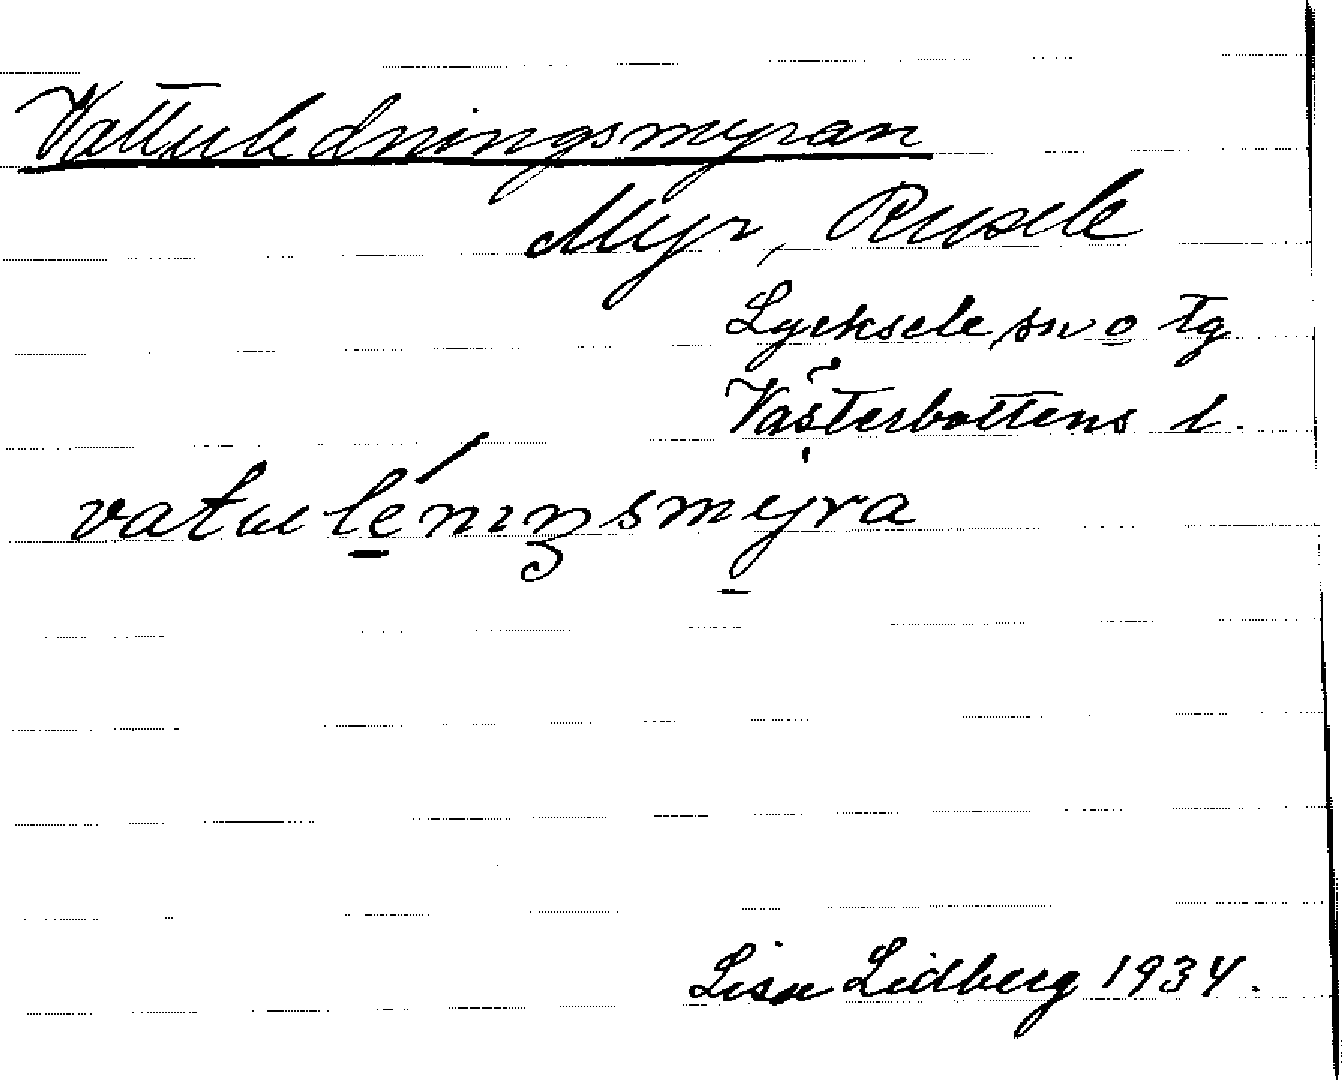 Vattuledningsmyran
Myr, Rusele
Lycksele sn o tg
Västerbottens l.
vatuléniŋsmyra
Lisa Lidberg 1934.